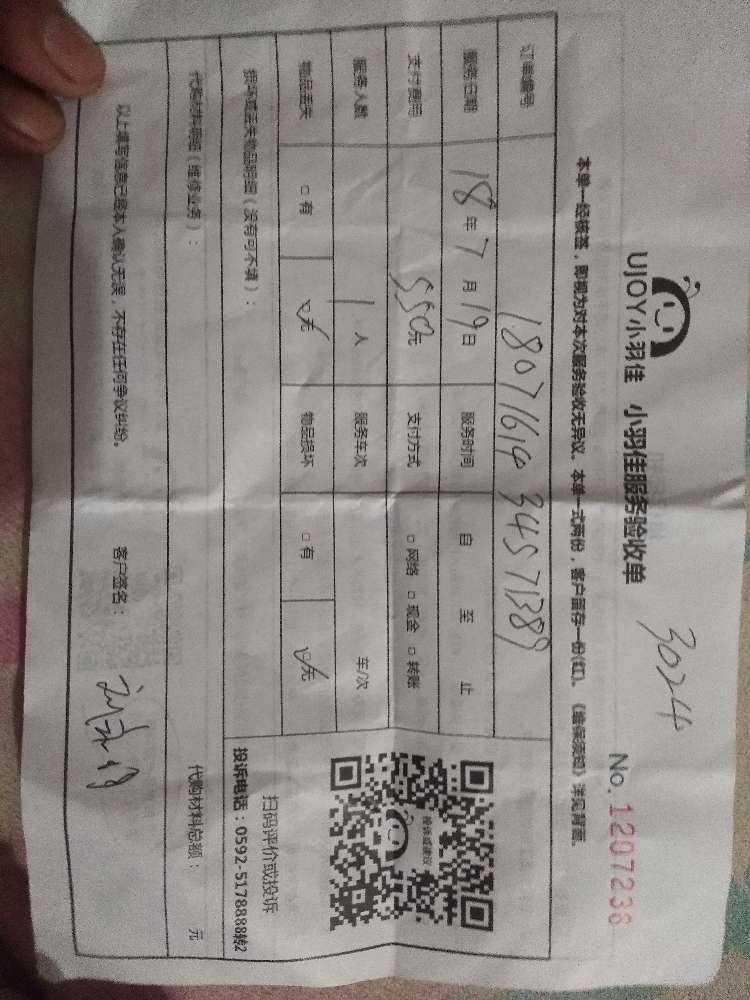 3024
UJOY小羽佳 小羽佳服务验收单 No.1207236
本单一经核签，即视为对本次服务验收无异议，本单一式两份，客户留存一份(红)。《维保须知》详见背面。
订单编号 18071614 34571389
服务日期 18年7月19日 服务时间 自 至 止
支付费用 550元 支付方式 □网络 □现金 □转账
服务人数 1人 服务车次 车/次
物品丢失 □有 □无 物品损坏 □有 □无
损坏或丢失物品明细（没有可不填）：
代购材料明细（维修业务）： 代购材料总额： 元
以上填写信息已经本人确认无误，不存在任何争议纠纷。 客户签名：
维保或建议
扫码评价或投诉
投诉电话：0592-5178888转2